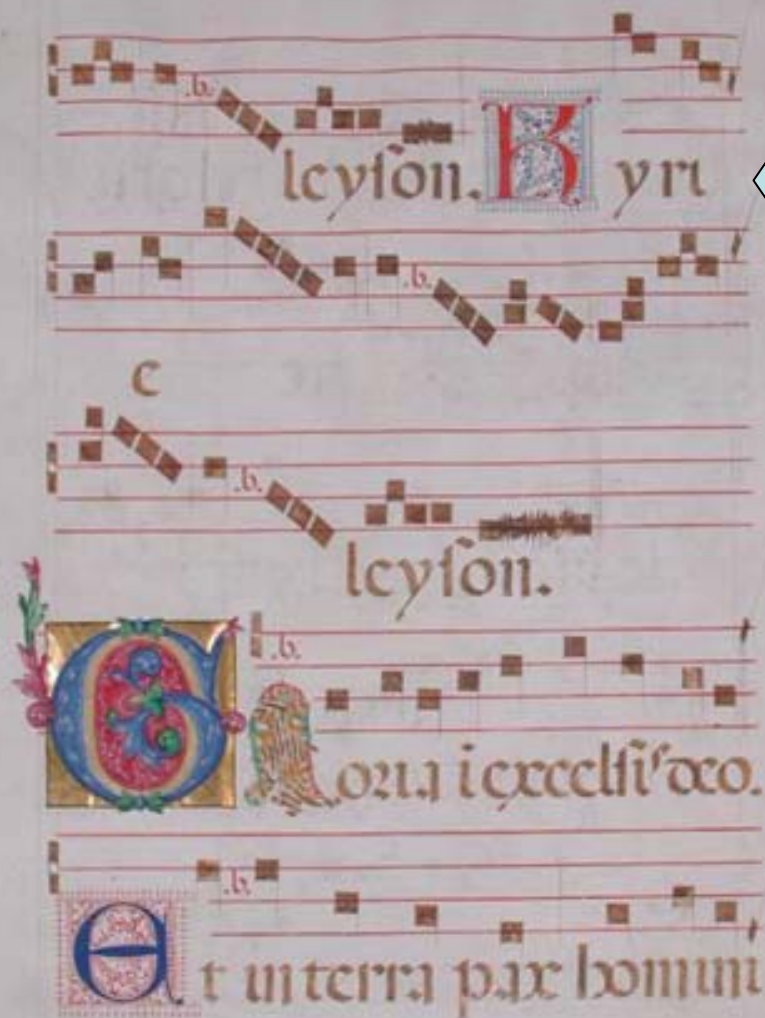 leyson. Kyri
e
leyson.
Gloria i excelsis deo.
Et in terra pax homini